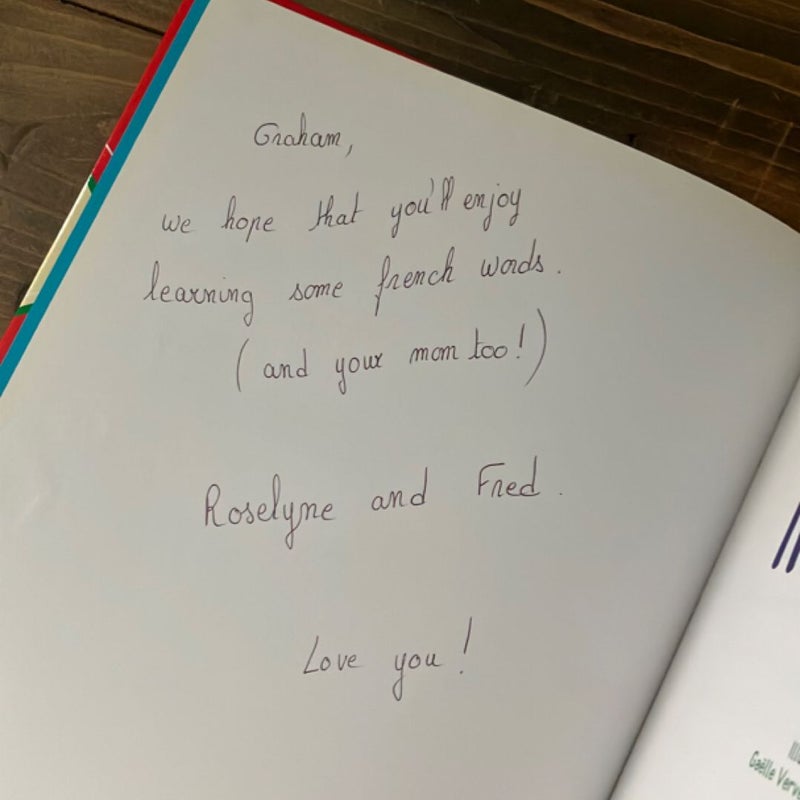 Graham,
we hope that you'll enjoy
learning some french words.
(and your mom too!)
Roselyne and Fred.
Love you!
Gaëlle